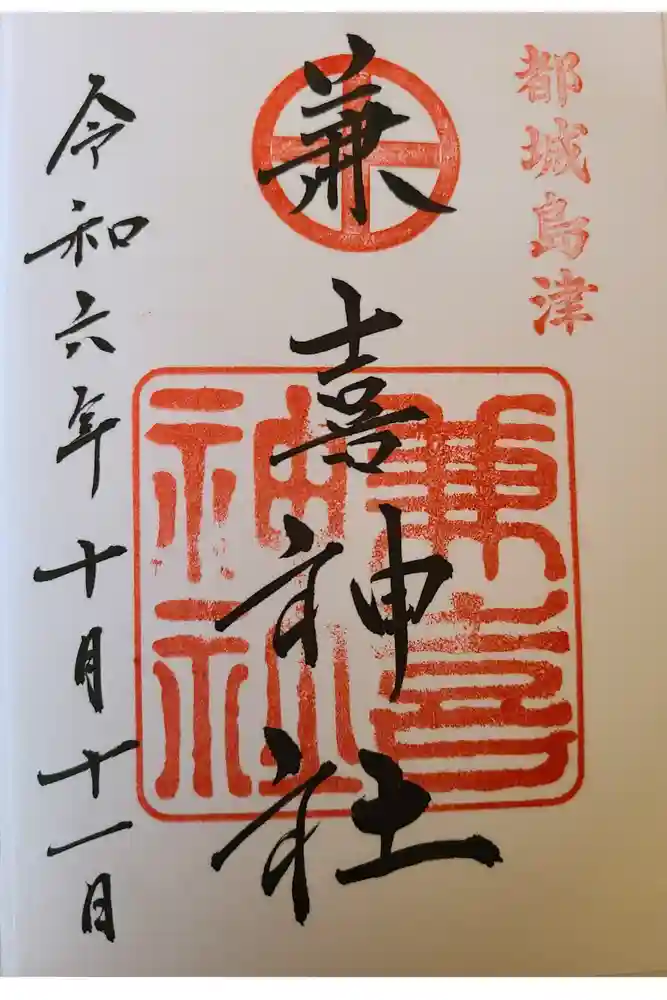 都城島津
兼喜神社
兼喜
神社
令和六年十月十一日